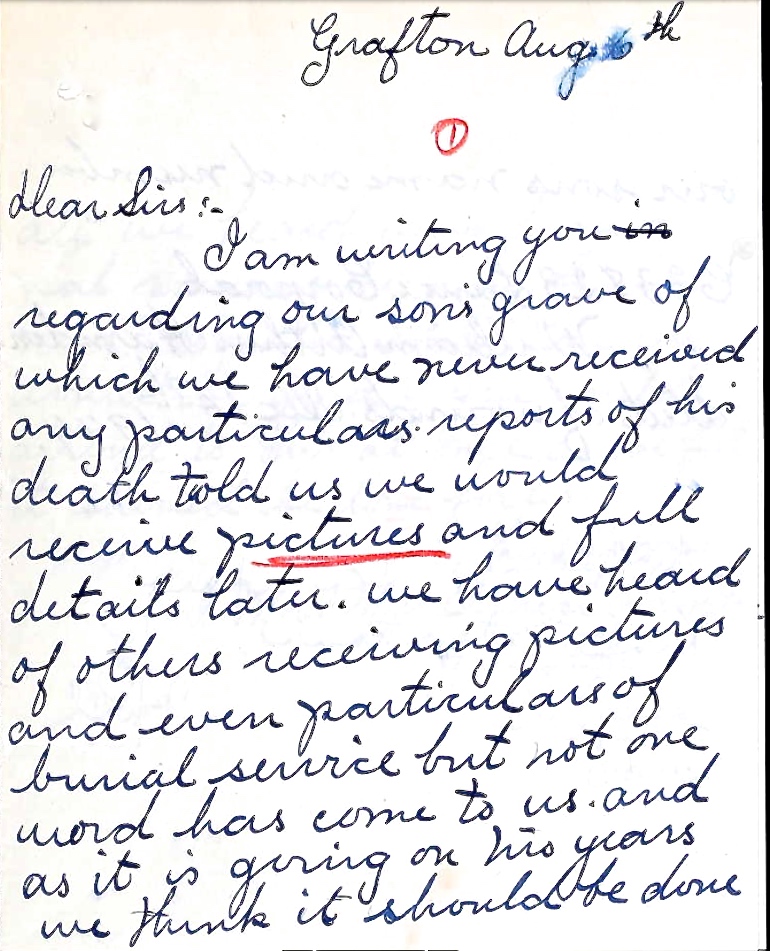 Grafton Aug 6th
1
Dear Sirs:-
I am writing you in
regarding our son's grave of
which we have never received
any particulars. reports of his
death told us we would
receive pictures and full
details later. we have heard
of others receiving pictures
and even particulars of
burial service but not one
word has come to us. and
as it is going on two years
we think it should be done